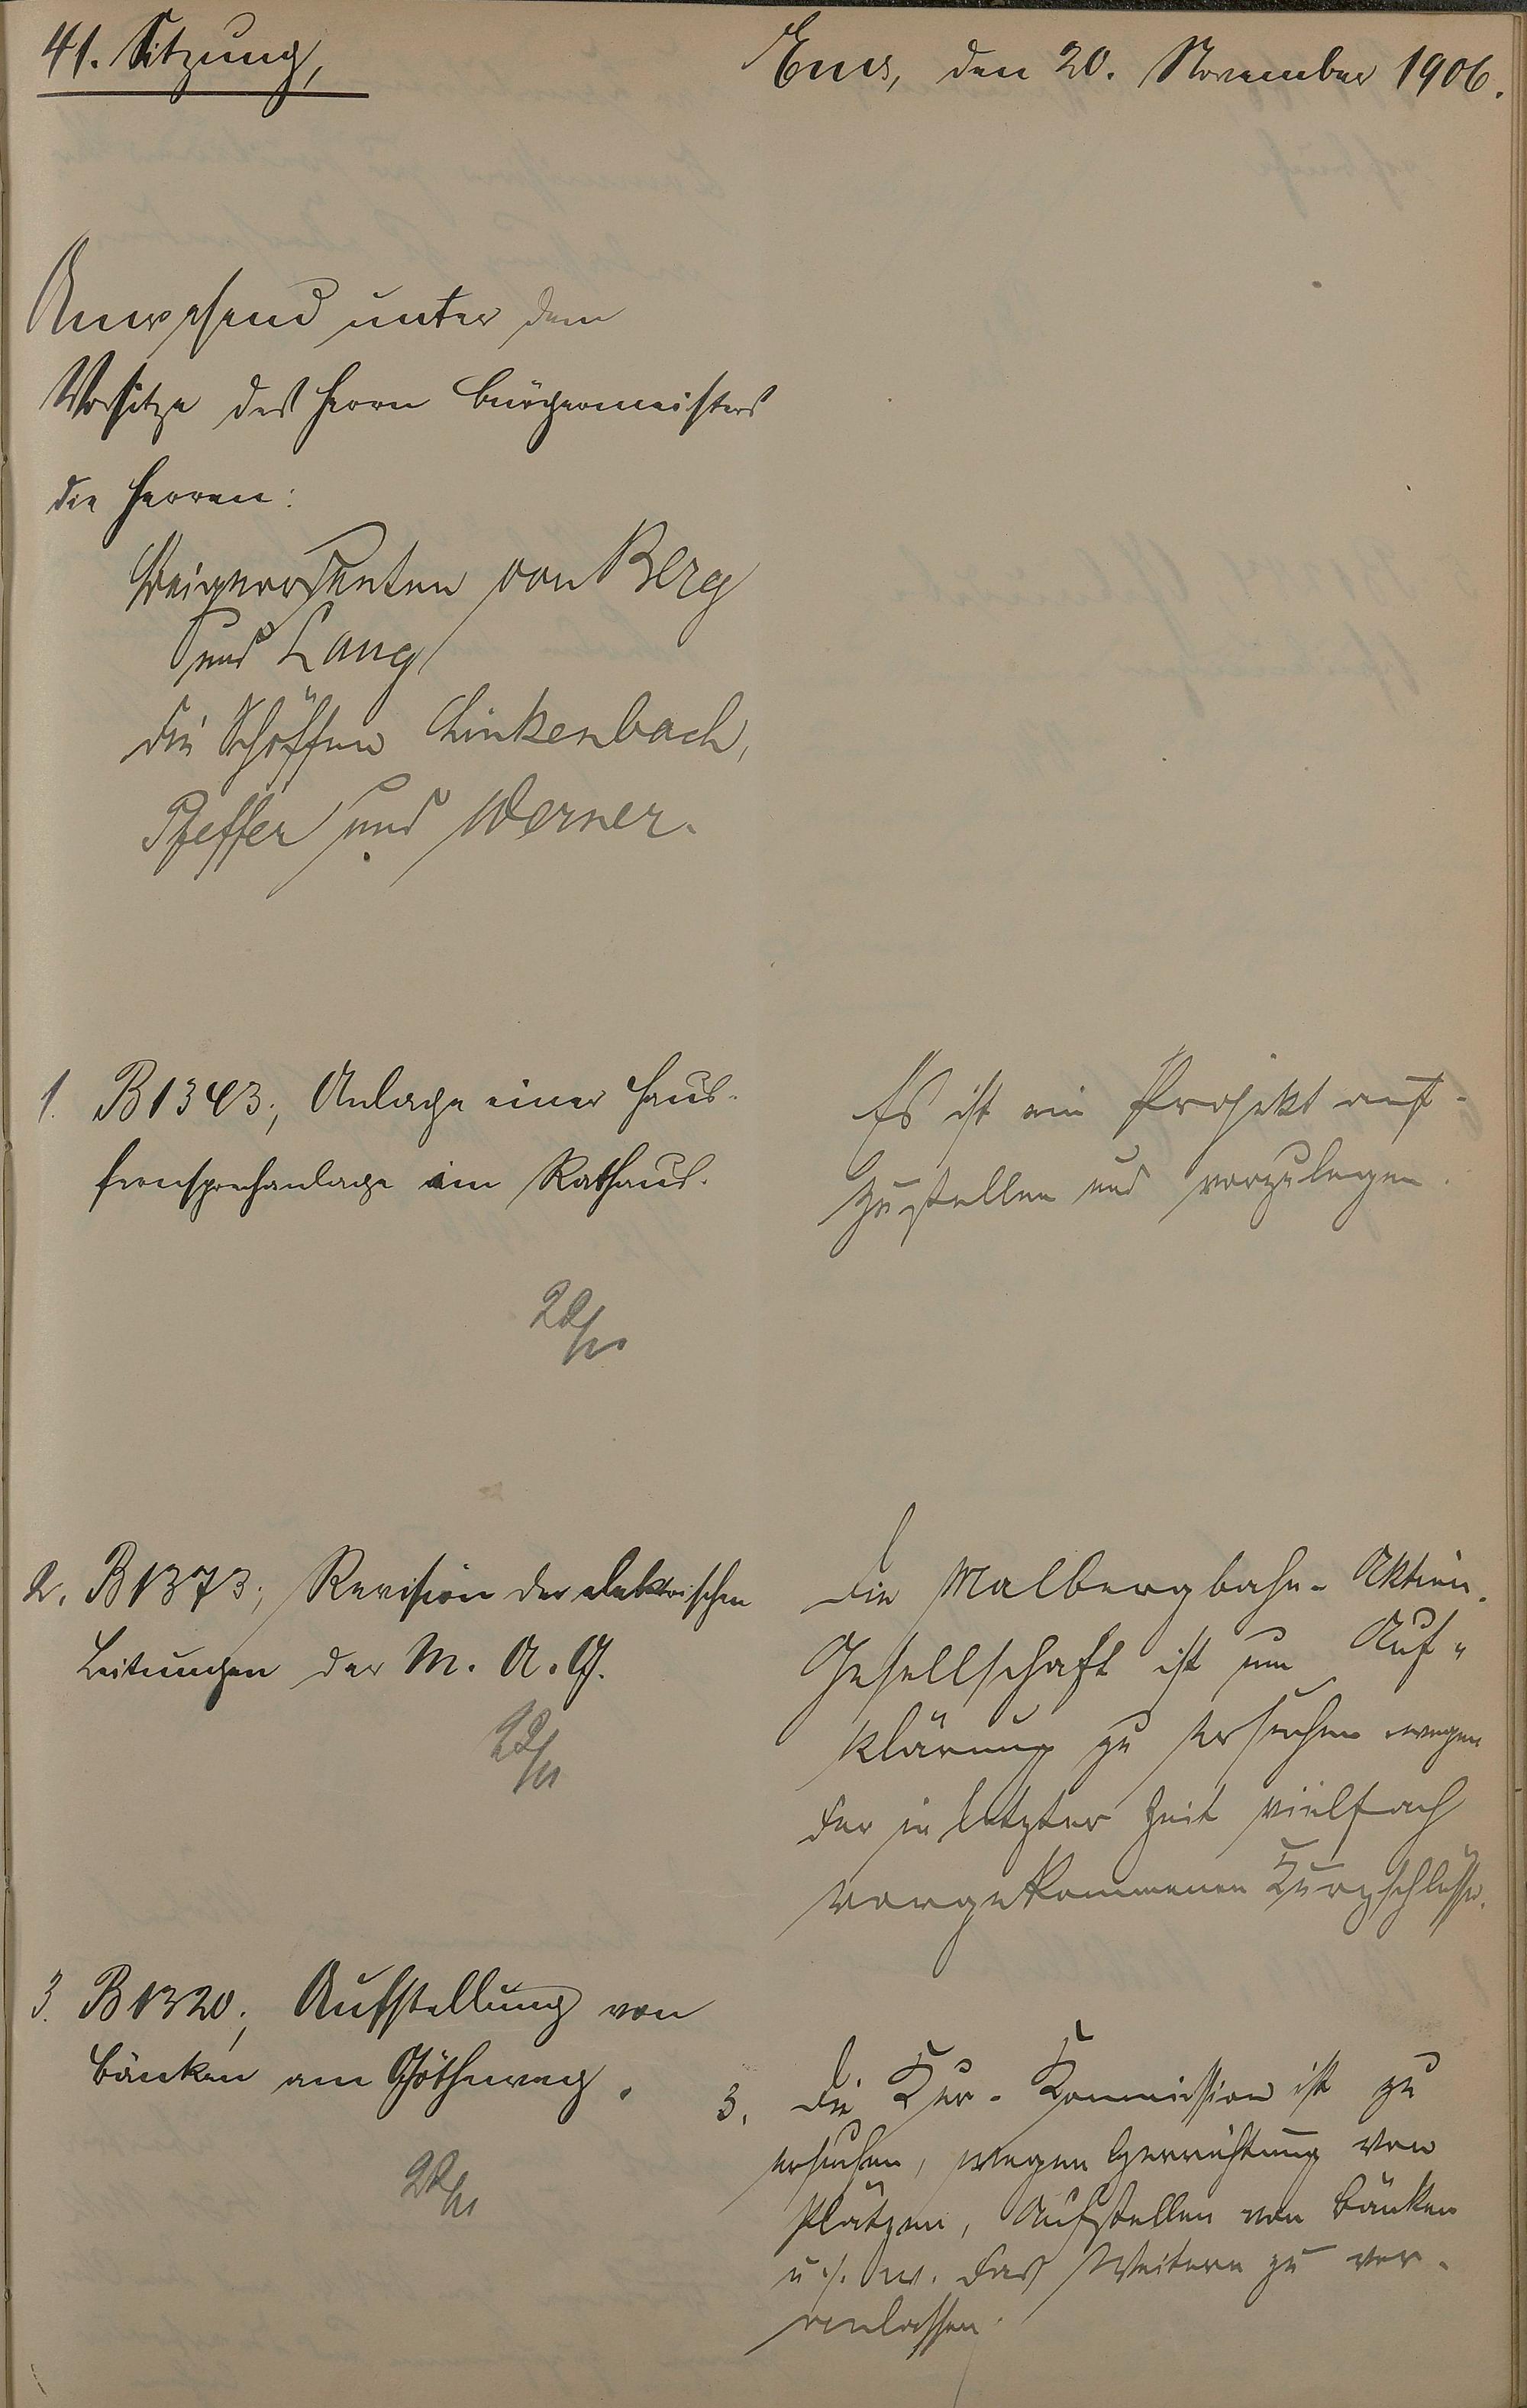 41. Sitzung,
Ems, den 20. November 1906.
Anwesend unter dem
Vorsitze des Herrn Bürgermeisters
die Herren:
Beigeordneten von Berg
und Lang
die Schöffen Linkenbach,
Pfeffer und Werner.
1. B 1343; Anlage einer Haus-
fernsprechanlage im Rathaus.
22/11
Es ist ein Projekt auf-
zustellen und vorzulegen.
2. B 1373; Revision der elektrischen
Leitungen der M. A. G.
22/11
Die Malbergbahn-Aktien-
Gesellschaft ist um Auf-
klärung zu ersuchen wegen
der in letzter Zeit vielfach
vorgekommenen Kurzschlüsse.
3. B 1320; Aufstellung von
Bänken am Götheweg.
22/11
3. Die Kur-Kommission ist zu
ersuchen, wegen Herrichtung von
Plätzen, Aufstellen von Bänken
u. s. w. das Weitere zu ver-
anlassen.